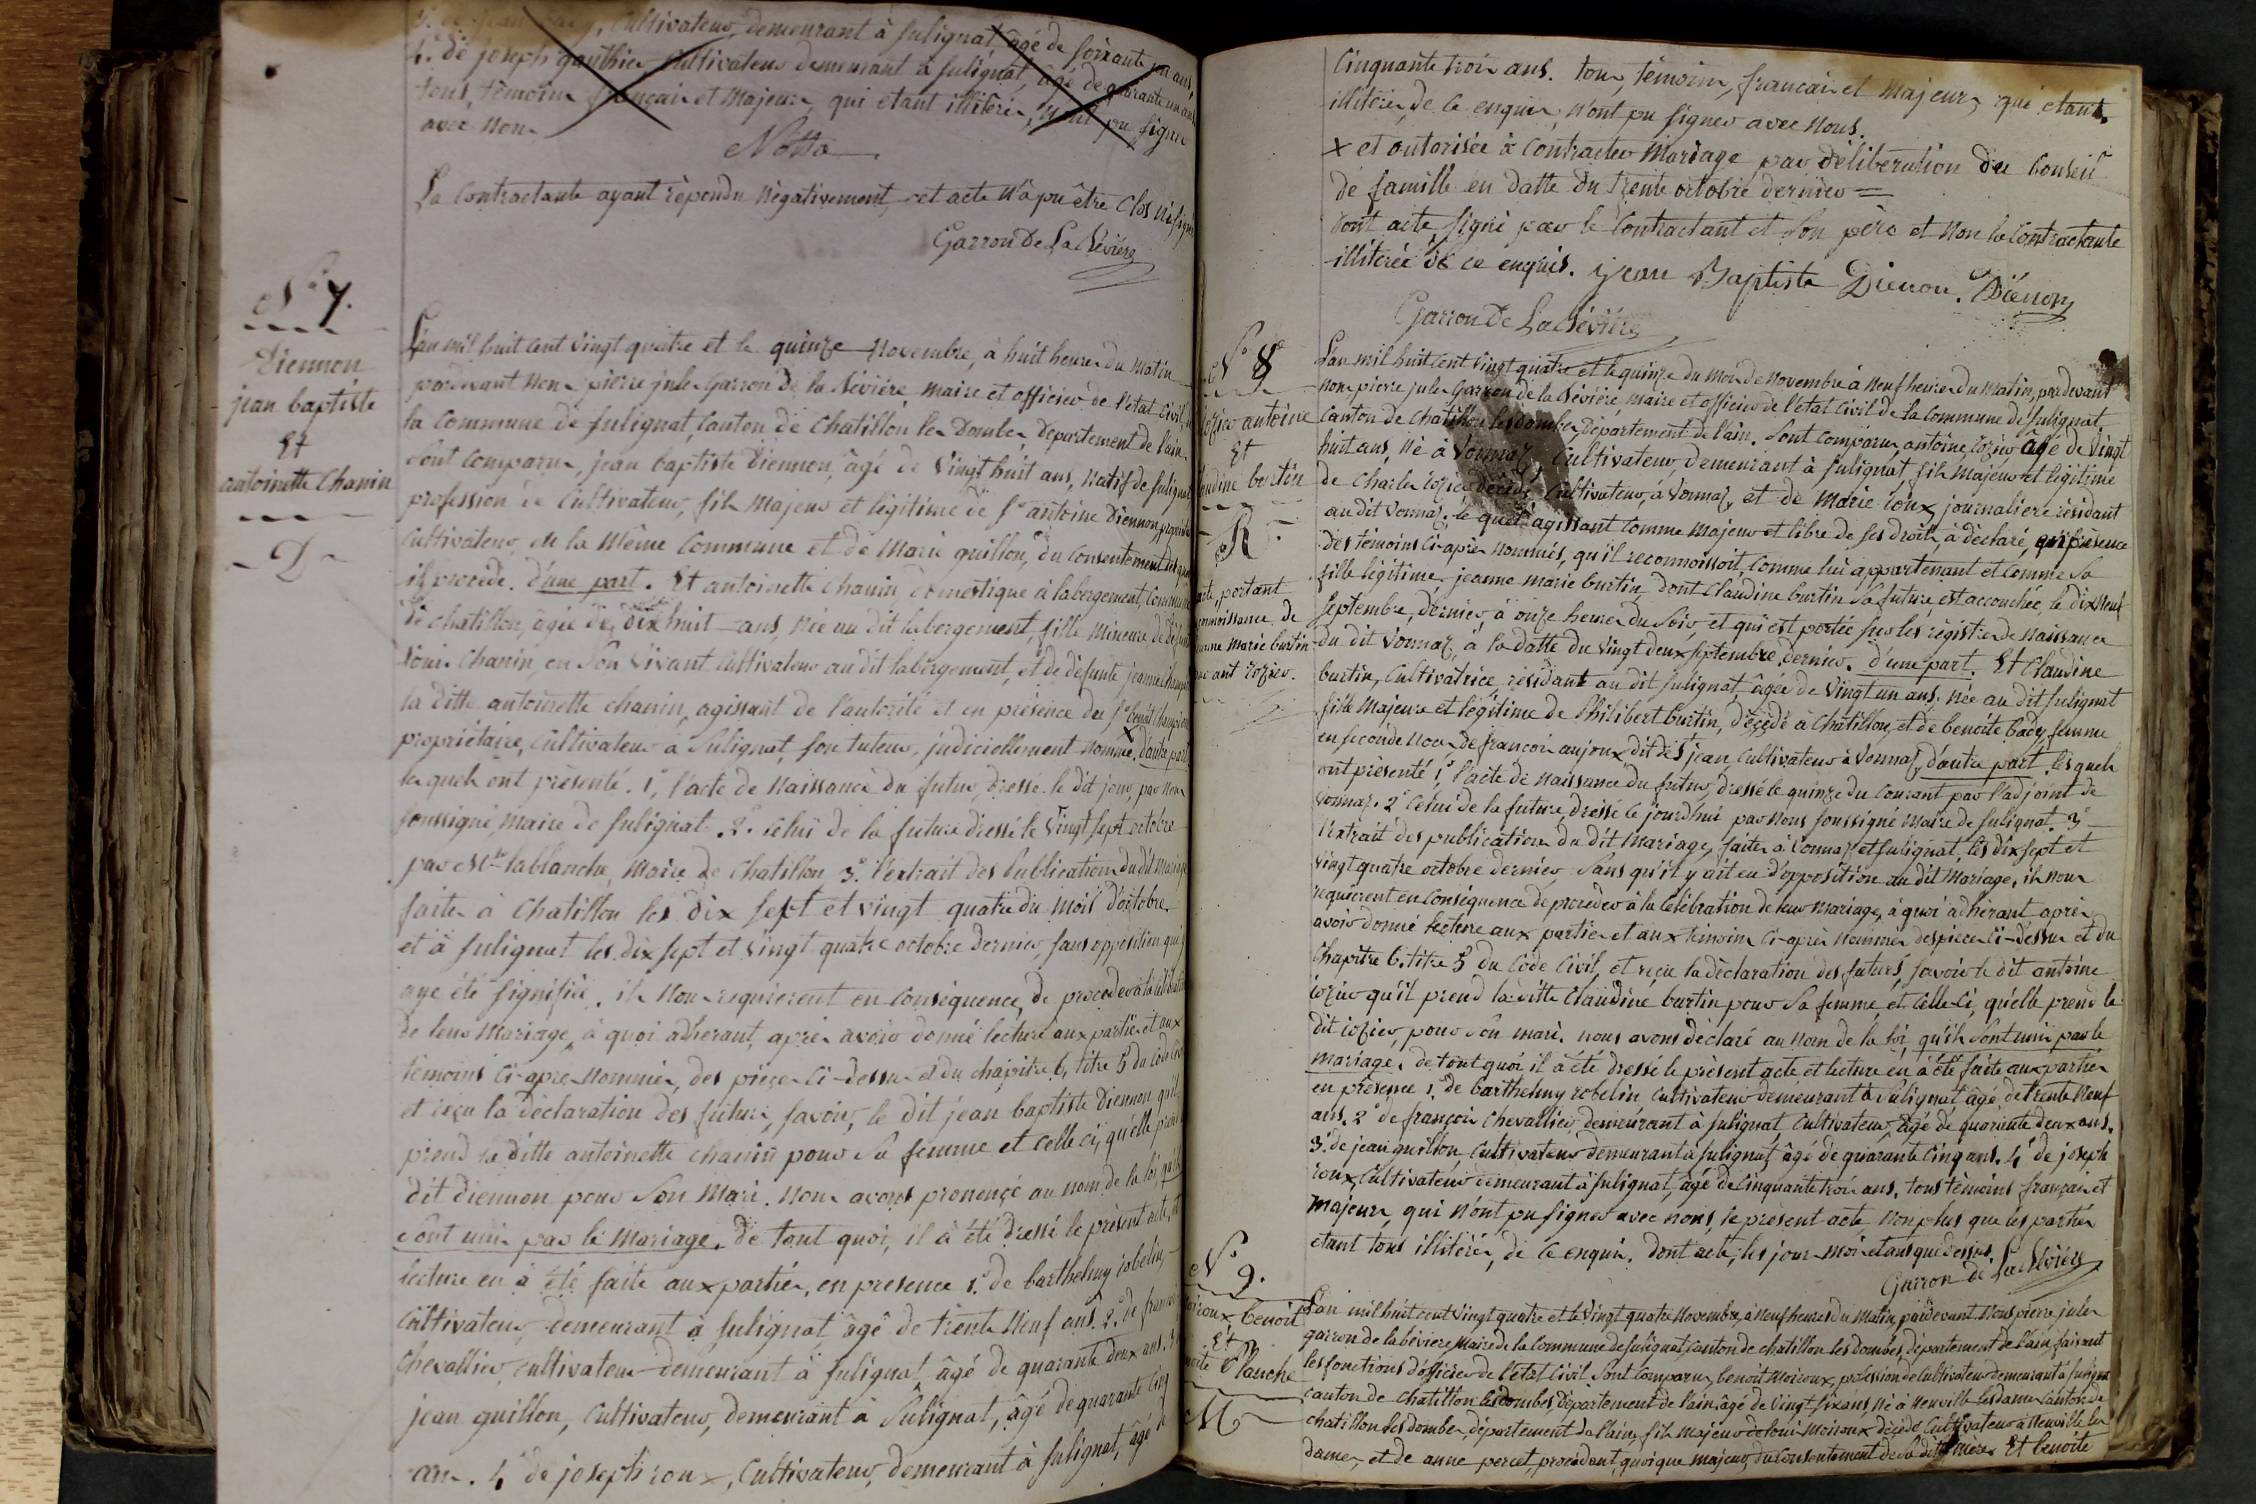 Cultivateur, demeurant à sulignat âgé de soixante un ans,
4.° de joseph gauthier Cultivateur demeurant à sulignat, âgé de quarante un ans
tous, témoins français et Majeurs, qui etant illitérés, n'ont pu signer
avec Nous
Notta
La Contractante ayant répondu Négativement, cet acte N'a pu être Clos ni signé
Garron De La Bévière
N.° 7.
Diennon
jean baptiste
Et
antoinette Chanin
D
L'an mil huit cent vingt quatre et le quinze Novembre, à huit heures du Matin
pardevant Nous pierre jules Garron de la Bévière, maire et officier de l'état Civil de
la Commune de sulignat, Canton de Chatillon les Dombes, Département de l'ain
Sont Comparus, jean baptiste Diennon, âgé de Vingt huit ans, Natif de sulignat
profession de Cultivateur, fils Majeur et légitime de s.r antoine Diennon, propriétaire
Cultivateur en la Même Commune et de Marie guillon, du Consentement
il procède. d'une part. Et antoinette Chanin, domestique à labergement, Commune
de chatillon, âgée de dix huit ans, Née au dit labergement, fille Mineure de défunt
Louis Chanin, en son Vivant Cultivateur au dit labergement, et de défunte jeanne
la ditte antoinette chanin, agissant de l'autorité et en présence du s.r benoit
propriétaire, Cultivateur à Sulignat, son tuteur, judiciellement Nommé, x d'autre part
lesquels ont présenté. 1.° l'acte de Naissance du futur, dressé le dit jour, par Nous
soussigné, Maire de sulignat. 2.° celui de la future dressé le Vingt sept octobre
par Mr lablanche, Maire de Chatillon 3.° l'extrait des Publications du dit Mariage
faites à Chatillon les dix sept et vingt quatre du mois d'octobre
et à sulignat les dix sept et vingt quatre octobre dernier, sans opposition qui
aye été signifiée. ils Nous requierent en Conséquence, de procéder à la célébration
de leur Mariage, à quoi adhérant, après avoir donné lecture aux parties et aux
témoins Ci-après Nommés, des pièces Ci-dessus et du chapitre 6, titre 5 du Code Civil
et reçu la déclaration des futurs, savoir, le dit jean baptiste Diennon qu'il
prend la ditte antoinette chanin pour sa femme et celle ci, qu'elle prend
dit diennon pour Son Mari. Nous avons prononcé au nom de la loi, qu'ils
Sont unis par le Mariage. De tout quoi, il a été dressé le présent acte, et
lecture en a été faite aux parties, en présence 1.° de barthelmy robelin,
Cultivateur demeurant à sulignat âgé de trente Neuf ans. 2.° de françois
Chevallier, cultivateur demeurant à sulignat, âgé de quarante deux ans. 3.°
jean guillon, Cultivateur, demeurant à Sulignat, âgé de quarante cinq
ans. 4.° de joseph roux, Cultivateur, demeurant à sulignat, âgé de
Cinquante trois ans. tous, témoins, français et Majeurs, qui etant
illitérés, de ce enquis, N'ont pu signer avec Nous.
x et autorisée à Contracter Mariage par délibération du Conseil
de famille en datte du trente octobre dernier =
dont acte, signé par le Contractant et son père et Non la Contractante
illitérée de ce enquis. jean Baptiste Dienon. Diénon
Garron De La Bévière
N.° 8
rozier antoine
Et
claudine burtin
R
acte, portant
reconnaissance, de
jeanne Marie burtin
par ant rozier.
L'an mil huit cent vingt quatre et le quinze du Mois de Novembre à Neuf heures du Matin, pardevant
Nous pierre jules Garron de la Bévière maire et officier de l'état Civil de la Commune de sulignat,
Canton de Chatillon les dombes, Département de l'ain. Sont Comparus, antoine rozier âgé de Vingt
huit ans, Né à Vonnaz, Cultivateur, demeurant à sulignat, fils Majeur et légitime
de Charles rozier décédé Cultivateur, à Vonnaz, et de Marie roux, journaliere résidant
au dit Vonnaz. lequel agissant Comme Majeur et libre de ses droits, a déclaré, en présence
des témoins Ci-après Nommés, qu'il reconnoissoit, Comme lui appartenant et Comme sa
fille légitime, jeanne marie burtin, dont Claudine burtin sa future, est accouchée, le dix Neuf
Septembre, dernier, à onze heures du Soir, et qui est portée sur les régistres de Naissances
du dit Vonnaz, à la datte du Vingt deux Septembre dernier. d'une part. Et Claudine
burtin, Cultivatrice résidant au dit sulignat âgée de Vingt un ans, Née au dit sulignat
fille Majeure et légitime de Philibert burtin, décédé à Chatillon, et de benoite bady, femme
en seconde Noces de françois aujoux dit de St jean, Cultivateur à Vonnaz, d'autre part. les quels
ont présenté 1.° l'acte de Naissance du futur, dressé le quinze du Courant par l'adjoint de
Vonnaz. 2.° Celui de la future, dressé ce jourd'hui par Nous soussigné Maire de sulignat. 3.°
l'extrait des publications du dit Mariage, faites à Vonnaz et sulignat, les dix sept et
vingt quatre octobre dernier Sans qu'il y ait eu d'opposition au dit Mariage, ils Nous
requierent en Conséquence de procéder à la Célébration de leur Mariage, à quoi adhérant, après
avoir donné lecture aux parties et aux témoins Ci-après Nommés des pièces Ci-dessus et du
Chapitre 6. titre 5 du Code Civil, et reçu la déclaration des futurs, savoir le dit antoine
rozier qu'il prend la ditte Claudine burtin pour Sa femme, et Celle-Ci, qu'elle prend le
dit rozier, pour Son Mari. nous avons déclaré au Nom de la loi, qu'ils Sont unis par le
mariage. de tout quoi il a été dressé le présent acte et lecture en a été faite aux parties
en présence 1.° de barthelmy robelin Cultivateur demeurant à Sulignat âgé de trente Neuf
ans. 2.° de françois Chevallier, demeurant à sulignat Cultivateur, âgé de quarante deux ans.
3.° de jean guillon, Cultivateur demeurant à sulignat, âgé de quarante Cinq ans. 4.° de joseph
roux, Cultivateur demeurant à sulignat, âgé de Cinquante trois ans, tous témoins français et
Majeurs, qui N'ont pu signer avec nous, le présent acte Non plus que les parties
etant tous illitérés, de Ce enquis. Dont acte, les jour Mois et ans que dessus.
Garron de La Bévière
N.° 9.
Moiroux benoit
Et
benoite Planche
M
L'an mil huit cent vingt quatre et le Vingt quatre Novembre, à Neuf heures du Matin, pardevant Nous pierre jules
garron de la bévière Maire de la Commune de sulignat, Canton de chatillon les dombes, département de l'ain, faisant
les fonctions d'officier de l'état Civil Sont Comparus, benoit Moiroux, profession de Cultivateur demeurant à sulignat
canton de Chatillon les dombes, Département de l'ain, âgé de Vingt six ans, Né à Neuville les dames Canton de
chatillon les dombes, département de l'ain, fils Majeur de louis Moiroux décédé Cultivateur à Neuville les
dames, et de anne percet, procédant, quoique majeur, du Consentement de sa ditte Mère. Et benoite